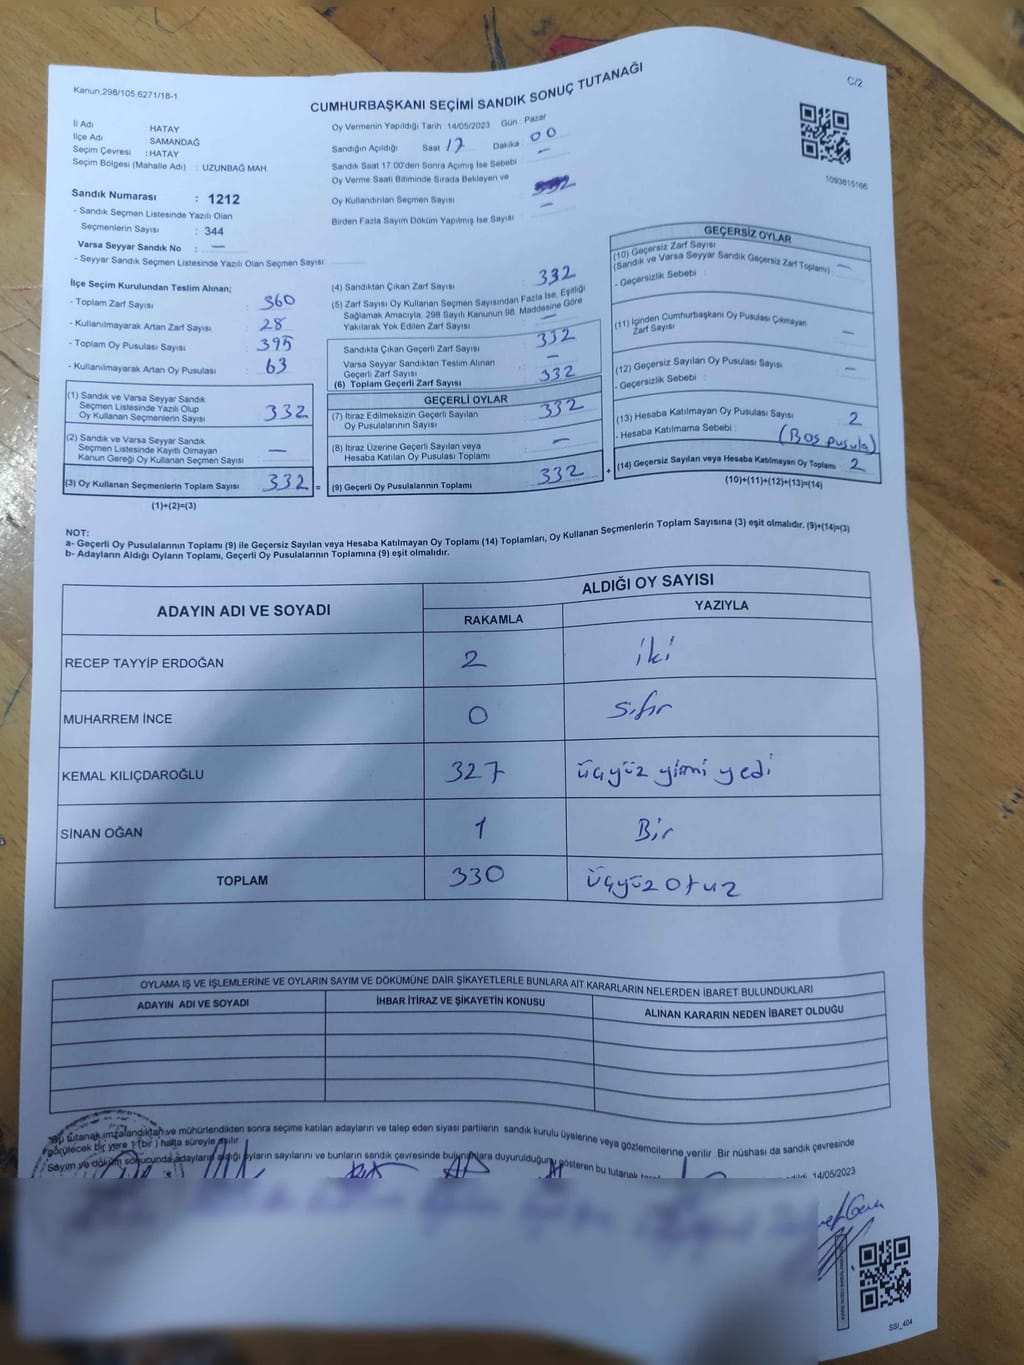 Kanun.298/105.6271/18-1
C/2
CUMHURBAŞKANI SEÇİMİ SANDIK SONUÇ TUTANAĞI
İl Adı HATAY
İlçe Adı SAMANDAĞ
Seçim Çevresi : HATAY
Seçim Bölgesi (Mahalle Adı) : UZUNBAĞ MAH.
Sandık Numarası : 1212
- Sandık Seçmen Listesinde Yazılı Olan
Seçmenlerin Sayısı : 344
Varsa Seyyar Sandık No : —
- Seyyar Sandık Seçmen Listesinde Yazılı Olan Seçmen Sayısı:
Oy Vermenin Yapıldığı Tarih 14/05/2023 Gün : Pazar
Sandığın Açıldığı Saat 17 Dakika 00
Sandık Saat 17.00'den Sonra Açımış İse Sebebi : —
Oy Verme Saati Bitiminde Sırada Bekleyen ve
Oy Kullandırılan Seçmen Sayısı —
Birden Fazla Sayım Döküm Yapılmış İse Sayısı
1093816166
İlçe Seçim Kurulundan Teslim Alınan;
- Toplam Zarf Sayısı : 360
- Kullanılmayarak Artan Zarf Sayısı : 28
- Toplam Oy Pusulası Sayısı : 395
- Kullanılmayarak Artan Oy Pusulası : 63
(1) Sandık ve Varsa Seyyar Sandık
Seçmen Listesinde Yazılı Olup
Oy Kullanan Seçmenlerin Sayısı 332
(2) Sandık ve Varsa Seyyar Sandık
Seçmen Listesinde Kayıtlı Olmayan
Kanun Gereği Oy Kullanan Seçmen Sayısı —
(3) Oy Kullanan Seçmenlerin Toplam Sayısı 332 =
(1)+(2)=(3)
(4) Sandıktan Çıkan Zarf Sayısı 332
(5) Zarf Sayısı Oy Kullanan Seçmen Sayısından Fazla İse, Eşitliği
Sağlamak Amacıyla, 298 Sayılı Kanunun 98. Maddesine Göre
Yakılarak Yok Edilen Zarf Sayısı —
Sandıkta Çıkan Geçerli Zarf Sayısı 332
Varsa Seyyar Sandıktan Teslim Alınan
Geçerli Zarf Sayısı —
(6) Toplam Geçerli Zarf Sayısı 332
GEÇERLİ OYLAR
(7) İtiraz Edilmeksizin Geçerli Sayılan
Oy Pusulalarının Sayısı 332
(8) İtiraz Üzerine Geçerli Sayılan veya
Hesaba Katılan Oy Pusulası Toplamı —
(9) Geçerli Oy Pusulalarının Toplamı 332 +
GEÇERSİZ OYLAR
(10) Geçersiz Zarf Sayısı
(Sandık ve Varsa Seyyar Sandık Geçersiz Zarf Toplamı) —
- Geçersizlik Sebebi :
(11) İçinden Cumhurbaşkanı Oy Pusulası Çıkmayan
Zarf Sayısı —
(12) Geçersiz Sayılan Oy Pusulası Sayısı —
- Geçersizlik Sebebi :
(13) Hesaba Katılmayan Oy Pusulası Sayısı 2
- Hesaba Katılmama Sebebi : (Boş pusula)
(14) Geçersiz Sayılan veya Hesaba Katılmayan Oy Toplamı 2
(10)+(11)+(12)+(13)=(14)
NOT:
a- Geçerli Oy Pusulalarının Toplamı (9) ile Geçersiz Sayılan veya Hesaba Katılmayan Oy Toplamı (14) Toplamları, Oy Kullanan Seçmenlerin Toplam Sayısına (3) eşit olmalıdır. (9)+(14)=(3)
b- Adayların Aldığı Oyların Toplamı, Geçerli Oy Pusulalarının Toplamına (9) eşit olmalıdır.
ADAYIN ADI VE SOYADI ALDIĞI OY SAYISI
RAKAMLA YAZIYLA
RECEP TAYYİP ERDOĞAN 2 iki
MUHARREM İNCE 0 Sıfır
KEMAL KILIÇDAROĞLU 327 üçyüz yirmi yedi
SİNAN OĞAN 1 Bir
TOPLAM 330 üçyüz otuz
OYLAMA İŞ VE İŞLEMLERİNE VE OYLARIN SAYIM VE DÖKÜMÜNE DAİR ŞİKAYETLERLE BUNLARA AİT KARARLARIN NELERDEN İBARET BULUNDUKLARI
ADAYIN ADI VE SOYADI İHBAR İTİRAZ VE ŞİKAYETİN KONUSU ALINAN KARARIN NEDEN İBARET OLDUĞU
"Bu tutanak imzalandıktan ve mühürlendikten sonra seçime katılan adayların ve talep eden siyasi partilerin sandık kurulu üyelerine veya gözlemcilerine verilir .Bir nüshası da sandık çevresinde
görülecek bir yere 1 (bir ) hafta süreyle asılır.
Sayım ve döküm sonucunda adayların aldığı oyların sayılarını ve bunların sandık çevresinde bulunanlara duyurulduğunu gösteren bu tutanak 14/05/2023
SSİ_404